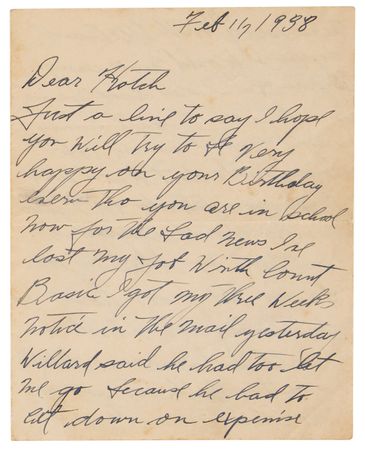 Feb 11, 1938
Dear Hotch
Just a line to say I hope
you will try to be very
happy on your Birthday
even tho you are in school
now for the Sad news I've
lost my job With Count
Basie I got my three Weeks
notice in the mail yesterday
Willard said he had too let
me go because he had to
cut down on expense